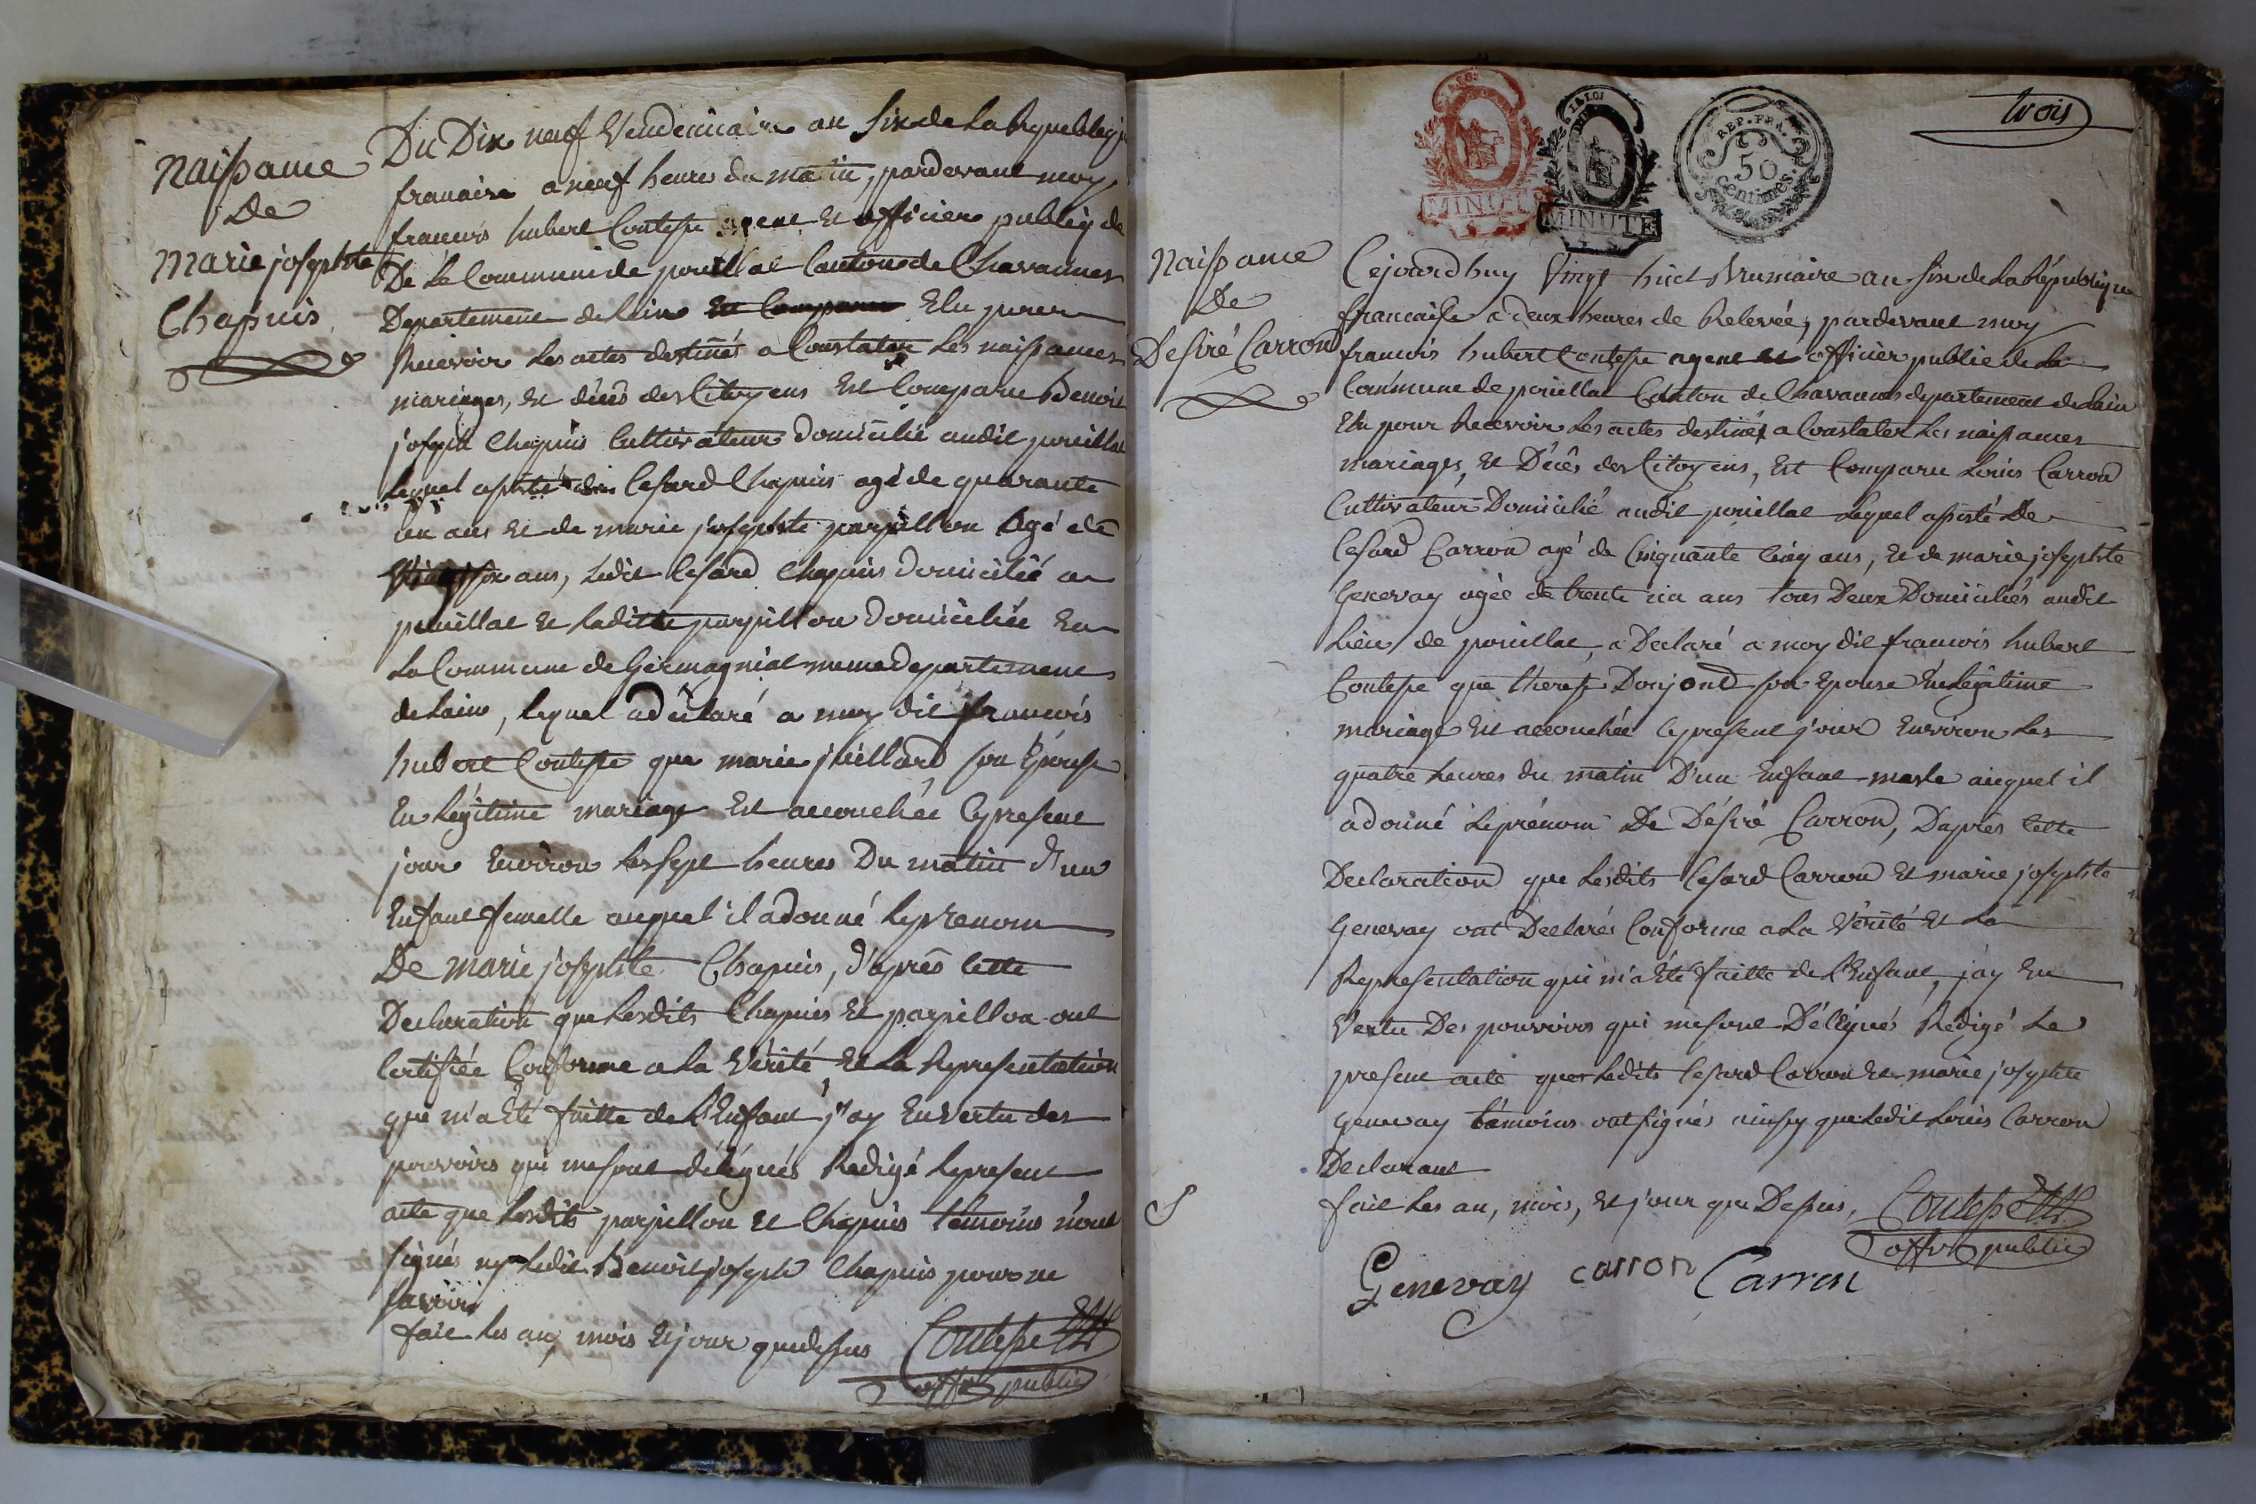 Naissance
De
Marie josephte
Chapuis
Du Dix neuf Vendemiaire an six de La Republique
francaise a neuf heures du matin, pardevant moy
francois hubert Contesse agent Et officier public de
De La Commune de pouillat Canton de Chavannes
Departement de Lain Est Comparu Elu pour
Recevoir Les actes destinés a Constater Les naissances
mariages, et décès des Citoyens Est Comparu Benoit
joseph Chapuis Cultivateur Domicilié audit pouillat
Lequel assisté de Cesard Chapuis agé de quarante
un ans et de marie josephte parpillon Agé de
Vingt six ans, Ledit Cesard Chapuis Domicilié a
pouillat et Laditte parpillon Domiciliée En
La Commune de Germagniat meme Departement
de Lain, Lequel a déclaré a moy dit francois
hubert Contesse que marie juillard son Epouse
En Légitime mariage Est accouchée Ce present
jour Environ Les sept heures Du matin d'un
Enfant femelle auquel il a donné Le prenom
De Marie josephte Chapuis, d'après Cette
Declaration que Lesdits Chapuis Et parpillon ont
Certifiée Conforme a La Vérité Et La Representation
que m'a Eté faitte de L'Enfant j'ay En Vertu des
pouvoirs qui me sont délégués Redigé Le present
acte que Lesdits parpillon et Chapuis temoins n'ont
signés ny Ledit Benoit joseph Chapuis pour ne
savoir
fait Les an, mois Et jour que dessus Contesse
offr public
trois
MINUTE
MINUTE
REP. FRA.
50
Centimes.
Naissance
De
Desiré Carron
Cejourd huy Vingt huit Brumaire an six de La République
francaise a deux heures de Relevée, pardevant moy
francois hubert Contesse agent et officier public de La
Commune de pouillat Canton de Chavannes departement de Lain
Elu pour Recevoir Les actes destinés a Constater Les naissances
mariages, Et Décès des Citoyens, Est Comparu Louis Carron
Cultivateur Domicilié audit pouillat Lequel assisté De
Cesard Carron agé de Cinquante Cinq ans, Et de marie josephte
Genevay agée de trente un ans tous Deux Domiciliés audit
Lieu de pouillat, a Declaré a moy dit francois hubert
Contesse que therese Donjond son Epouse En Légitime
mariage Est accouchée Ce present jour Environ Les
quatre heures du matin D'un Enfant masle auquel il
a donné Le prénom De Désiré Carron, D'après Cette
Declaration que Lesdits Cesard Carron Et marie josephte
Genevay ont Declarés Conforme a La Vérité Et La
Representation qui m'a Eté faitte de L'Enfant, j'ay En
Vertu Des pouvoirs qui me sont Délégués Redigé Le
present acte que Lesdits Cesard Carron Et marie josephte
Genevay temoins ont signés ainsy que Ledit Louis Carron
Declarant
fait Les an, mois, Et jour que Dessus, Contesse
offr public
Genevay carron Carron